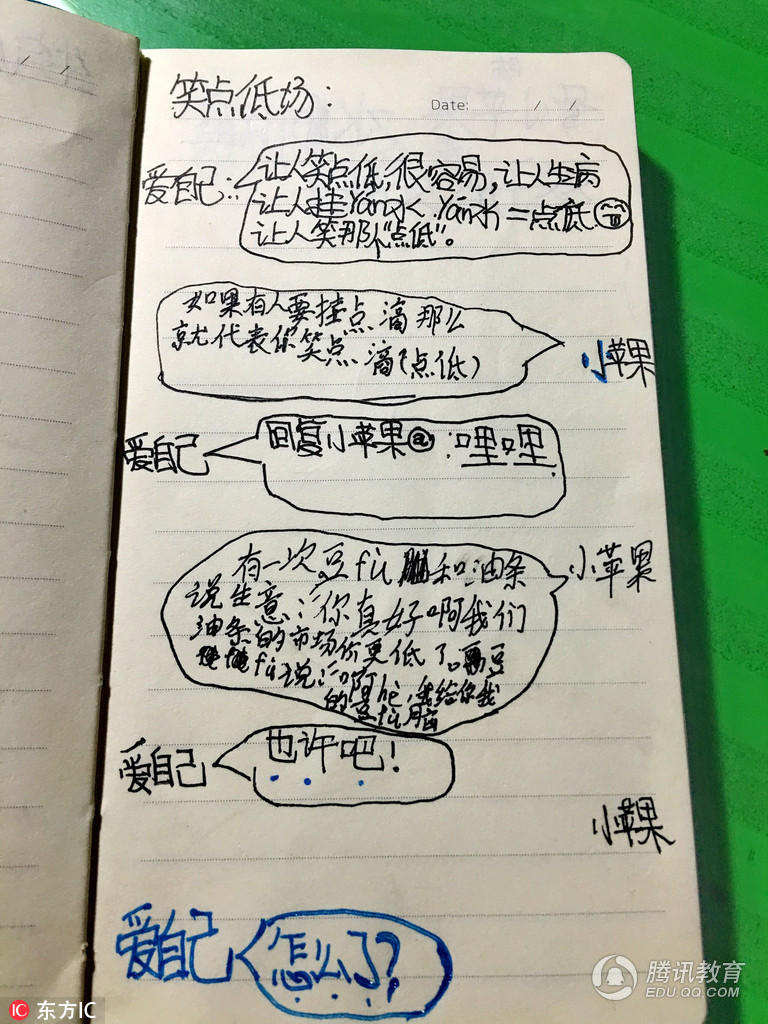 笑点低场:
Date: / /
爱自己:
让人笑点低,很容易,让人生病
让人挂
=点低
让人笑那个"点低"。
如果有人要挂点滴那么
就代表你笑点滴(点低)
小苹果
爱自己
回复小苹果@:哩哩.
小苹果
有一次豆fu 和油条
说生意:你真好啊我们
油条的市场价更低了
fu说:啊
我给你我
的豆fu脑
爱自己
也许吧!
小苹果
爱自己
怎么了?
腾讯教育
EDU.QQ.COM
IC 东方IC